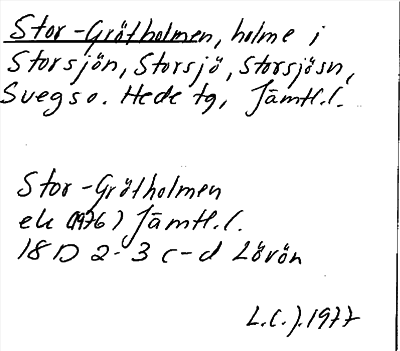 Stor-Grötholmen, holme i
Storsjön, Storsjö, Storsjösn,
Svegs o. Hede tg, Jämtl.l.
Stor-Grötholmen
ek (1976) Jämtl.l.
18D 2-3 c-d Lövön
L.C.J. 1977